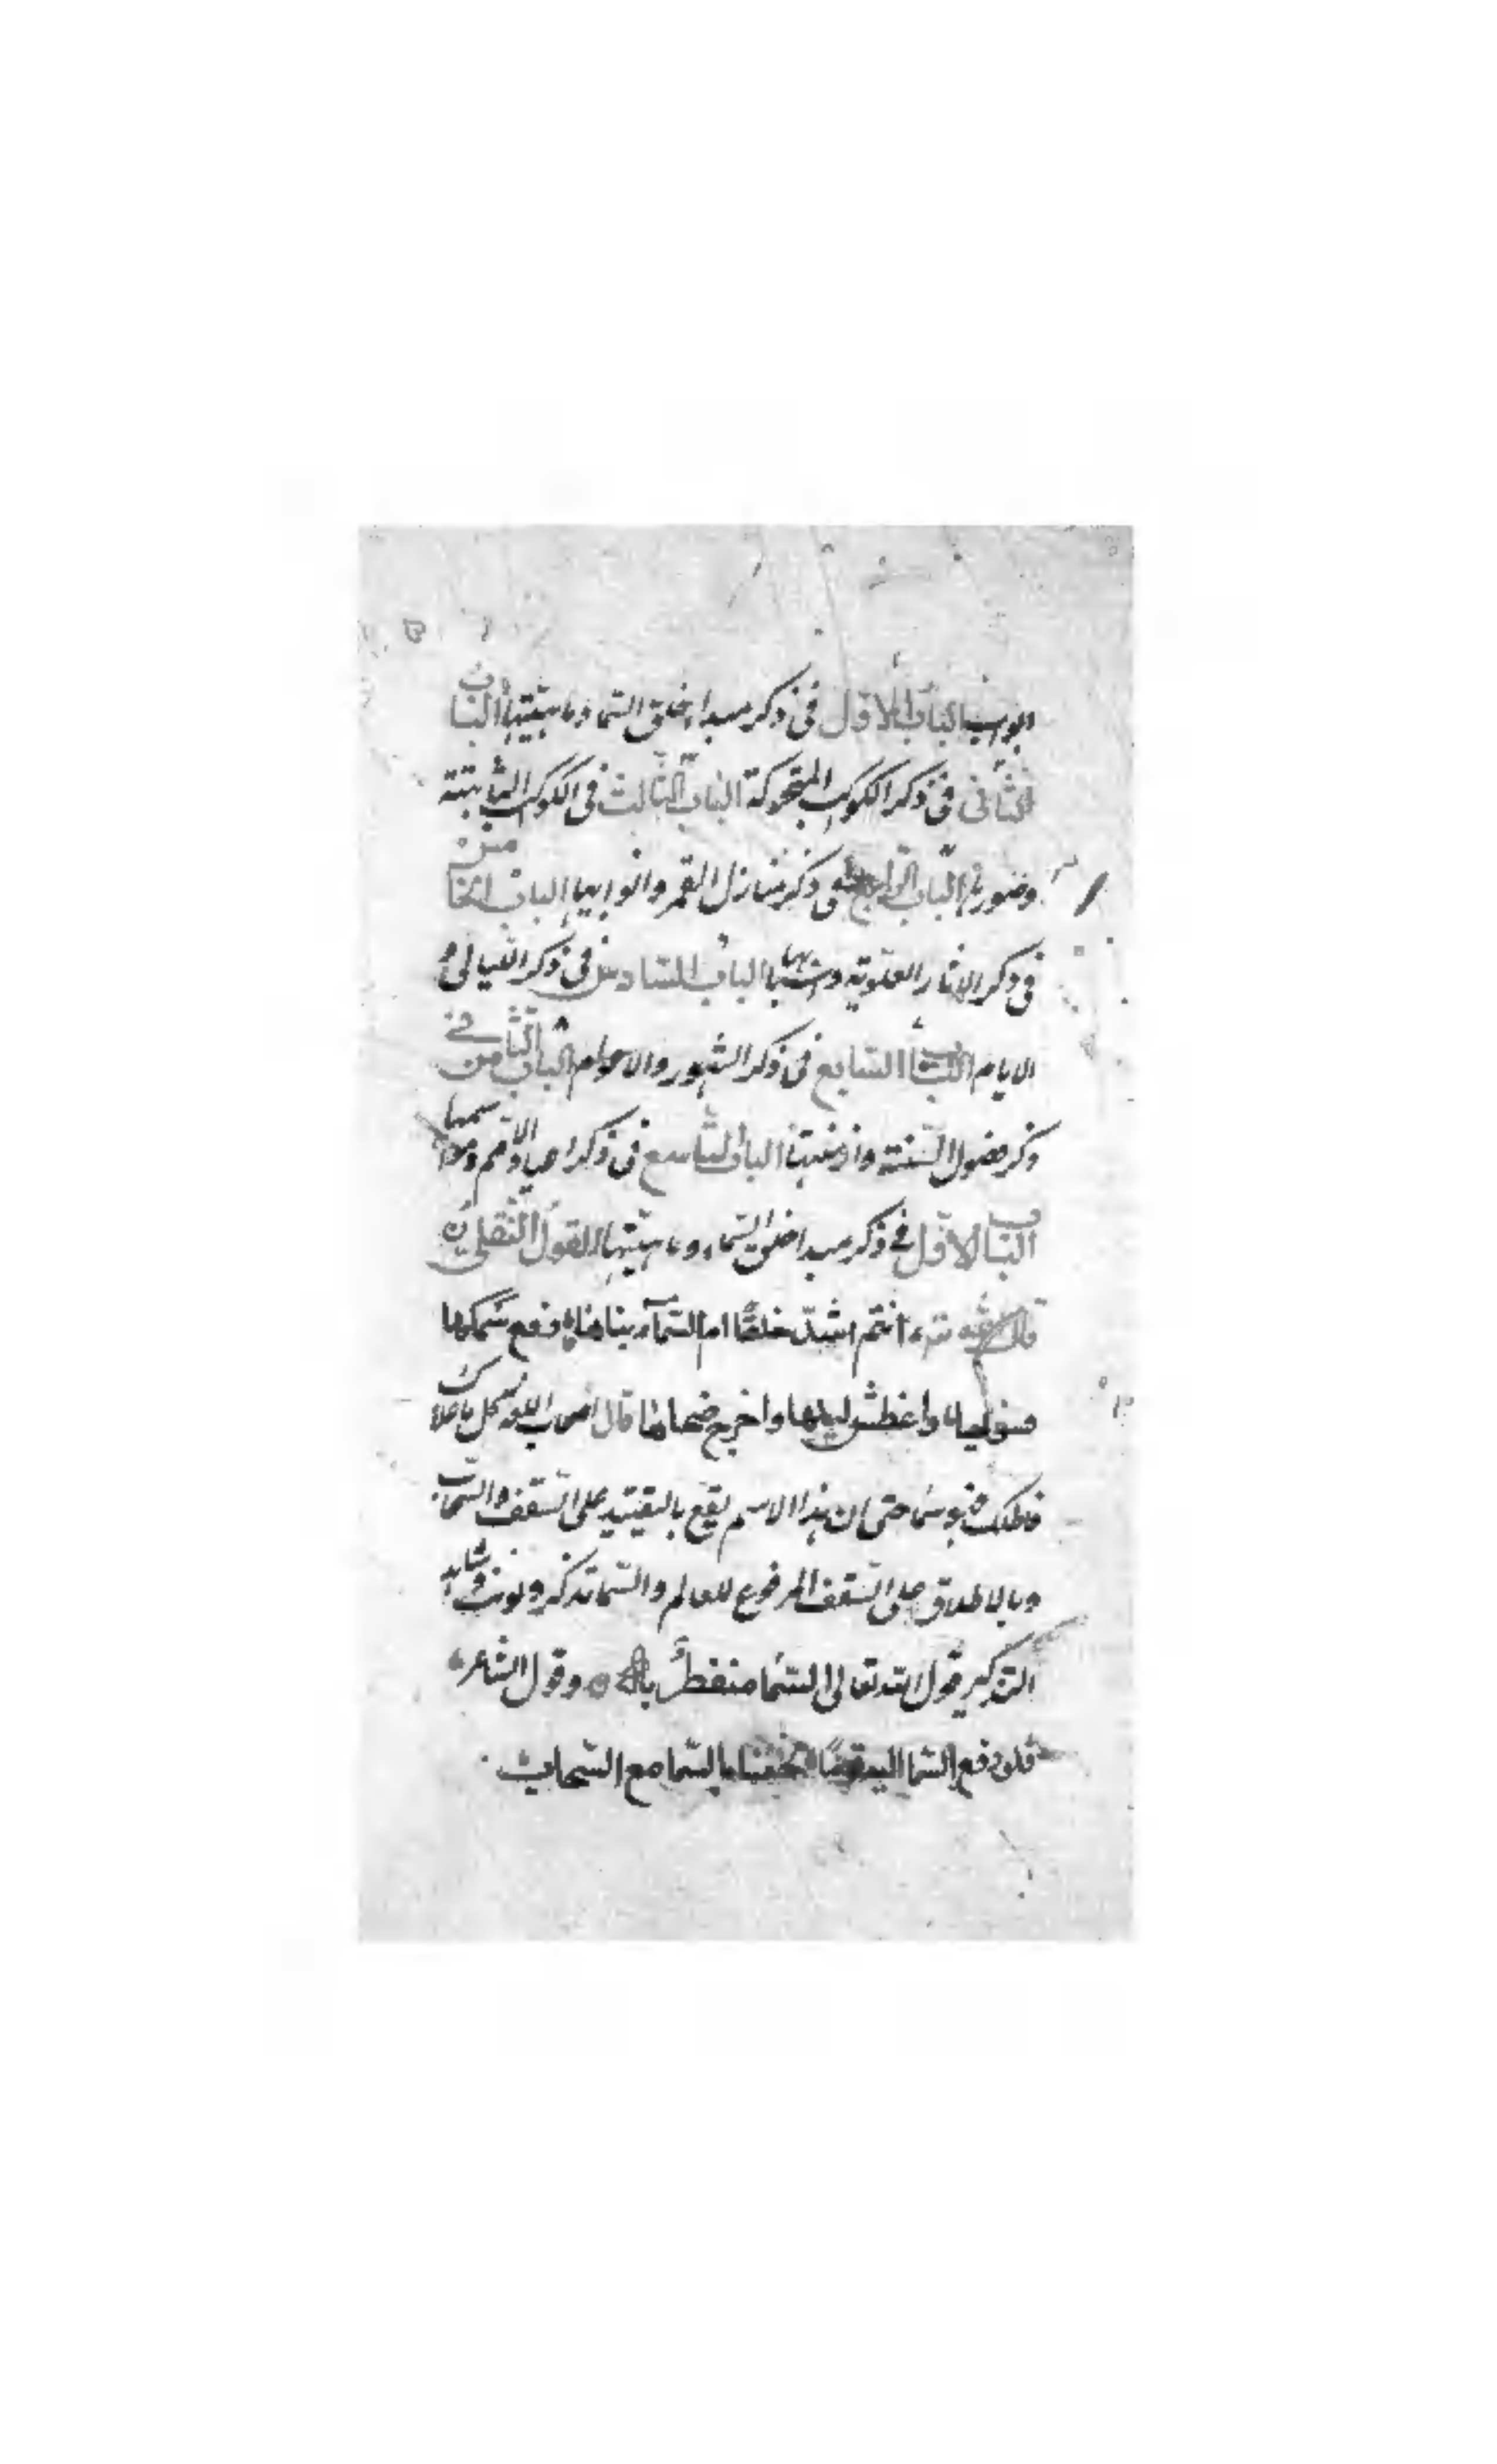 ابواب الباب الاول فى ذكر مبدا خلق السما وما هيتها الباب
الثانى فى ذكر الكواكب المتحركة الباب الثالث فى الكواكب الثابتة
وصورها الباب الرابع فى ذكر منازل القمر وانوايها الباب الخامس
فى ذكر الاثار العلوية الباب السادس فى ذكر الليالى و
الايام الباب السابع فى ذكر الشهور والاعوام الباب الثامن فى
ذكر فصول السنة وازمنتها الباب التاسع فى ذكر اعياد الامم ومواسمها
الباب الاول فى ذكر مبدا خلق السماء وما هيتها القول النقلى
قال انتم اشد خلقا ام السماء بناها رفع سمكها
فسواها واغطش ليلها واخرج ضحاها قال اصحاب اللغة كل ما علاك
فاظلك فهو سما حتى ان هذا الاسم يقع بالتقييد على السقف والسحاب
وبالاطلاق على السقف المرفوع للعالم والسما تذكر وتونث وشاهد
التذكير قول الله تعالى السما منفطر به وقول الشاعر
فلو رفع السما اليه بالسما مع السحاب